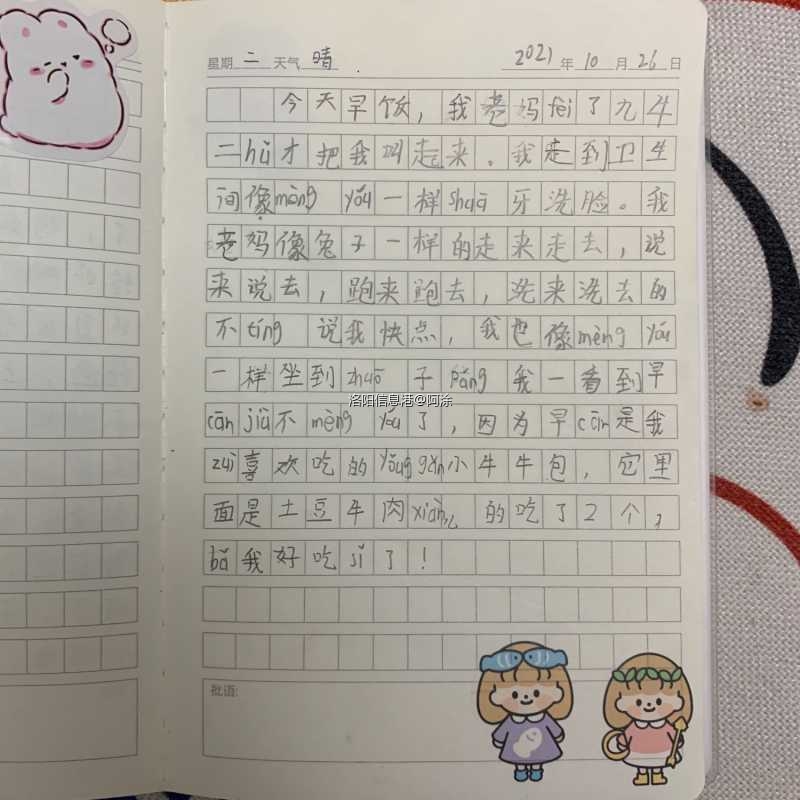 星期 二 天气 晴 . 2021 年 10 月 26 日
今天早饭，我老妈fèi了九牛
二hǔ才把我叫走来。我走到卫生
间像mèng yóu一样shuā牙洗脸。我
老妈像兔子一样的走来走去，说
来说去，跑来跑去，洗来洗去的
不tíng说我快点，我也像mèng yóu
一样坐到zhuō子páng我一看到早
cān jiù不mèng yóu了，因为早cān是我
zuì喜欢吃的 小牛牛包，它里
面是土豆牛肉xiànㄦ的吃了2个，
bǎ我好吃sǐ了！
批语:
洛阳信息港@阿涂